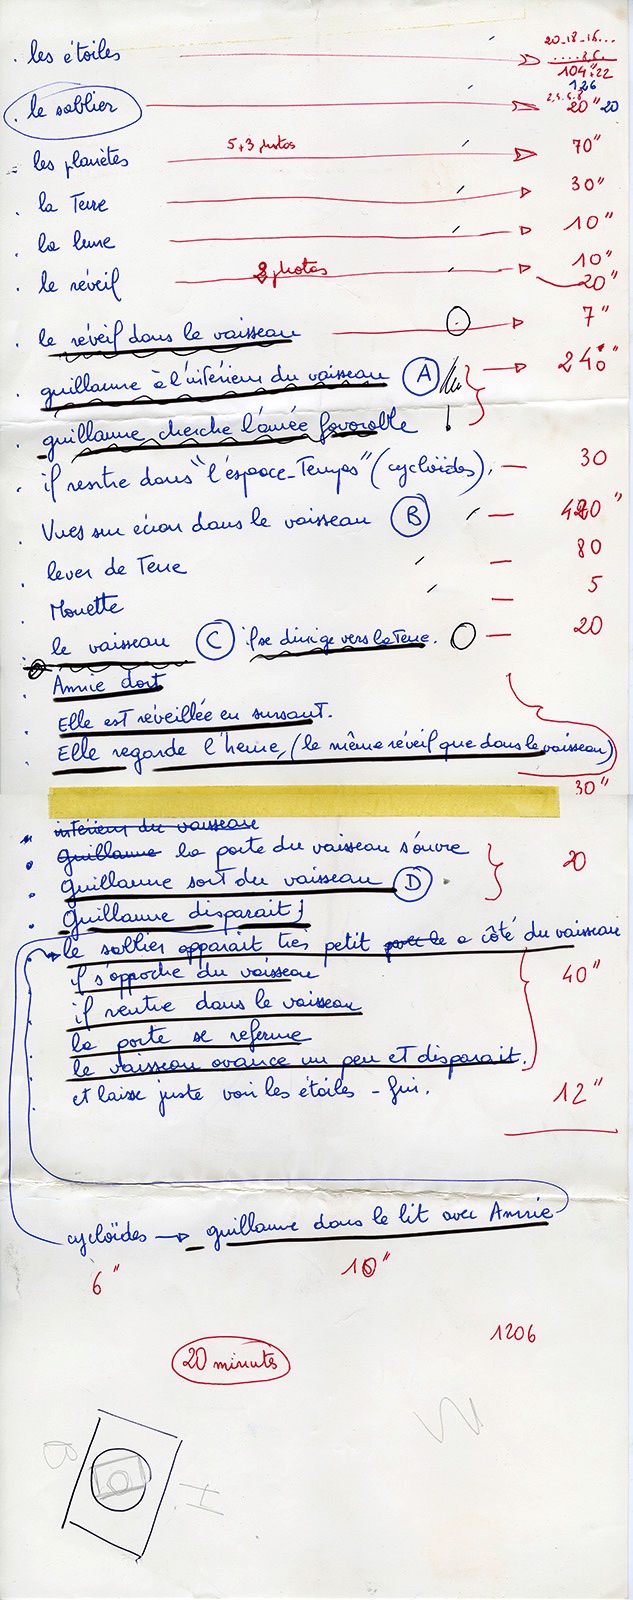 20_18_16...
. les étoiles
104" 22
126
. le sablier 20" 20
les planètes 5+3 photos 70"
. la Terre 30"
. la lune 10"
. le réveil 8 photos 10"
20"
. le réveil dans le vaisseau 7"
. guillaume à l'intérieur du vaisseau A 240"
. guillaume cherche l'année favorable
. il rentre dans "l'espace-Temps" (cycloïdes). 30
. Vues sur écran dans le vaisseau B
. lever de Terre 80
. Mouette 5
. le vaisseau C il se dirige vers la Terre. 20
. Annie dort
. Elle est réveillée en sursaut.
. Elle regarde l'heure, (le même réveil que dans le vaisseau)
30"
intérieur du vaisseau
. guillaume la porte du vaisseau s'ouvre 20
. guillaume sort du vaisseau D
. guillaume disparait
le sablier apparait très petit a côté du vaisseau
il s'approche du vaisseau 40"
il rentre dans le vaisseau
la porte se referme
le vaisseau avance un peu et disparait.
et laisse juste voir les étoiles - fin. 12"
cycloïdes → guillaume dans le lit avec Annie
6" 10"
1206
20 minutes